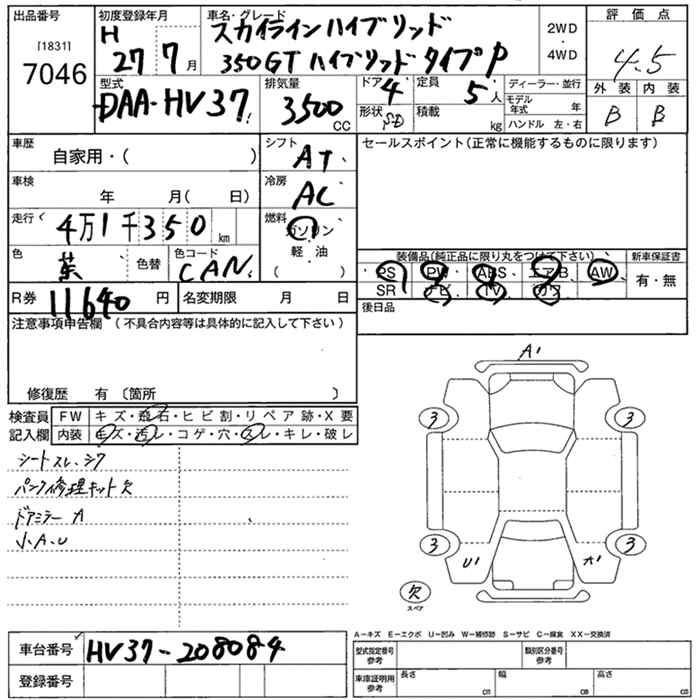 出品番号
[1831]
7046
初度登録年月
H
27 7月
車名・グレード
スカイラインハイブリッド
350GT ハイブリッド タイプP
2WD
・
4WD
評価点
4.5
外装 内装
B B
型式
DAA-HV37
排気量
3500
CC
ドア 4
形状 SD
定員
5人
積載
kg
ディーラー・並行
モデル年式 年
ハンドル 左・右
車歴
自家用・( )
シフト
AT
車検
年 月( 日)
冷房
AC
走行
4万1千350km
燃料
ガソリン
軽・油
( )
色
茶
色替
色コード
CAN
R券 11640円
名変期限 月 日
セールスポイント(正常に機能するものに限ります)
装備品(純正品に限り丸をつけて下さい)
PS PW ABS エアB AW
SR ナビ TV カワ
新車保証書
有・無
後日品
注意事項申告欄(不具合内容等は具体的に記入して下さい)
修復歴 有〔箇所 〕
検査員
記入欄
FW キズ・飛石・ヒビ割・リペア跡・X要
内装 キズ・汚レ・コゲ・穴・スレ・キレ・破レ
シートスレ、シワ
パンク修理キット欠
ドアミラー A
小A、U
A1
3 3
3 3
U1 A1
欠
スペア
A−キズ E−エクボ U−凹み W−補修跡 S−サビ C−腐食 XX−交換済
車台番号 HV37-208084
登録番号
型式指定番号
参考
類別区分番号
参考
車庫証明用
参考
長さ
cm
幅
cm
高さ
cm